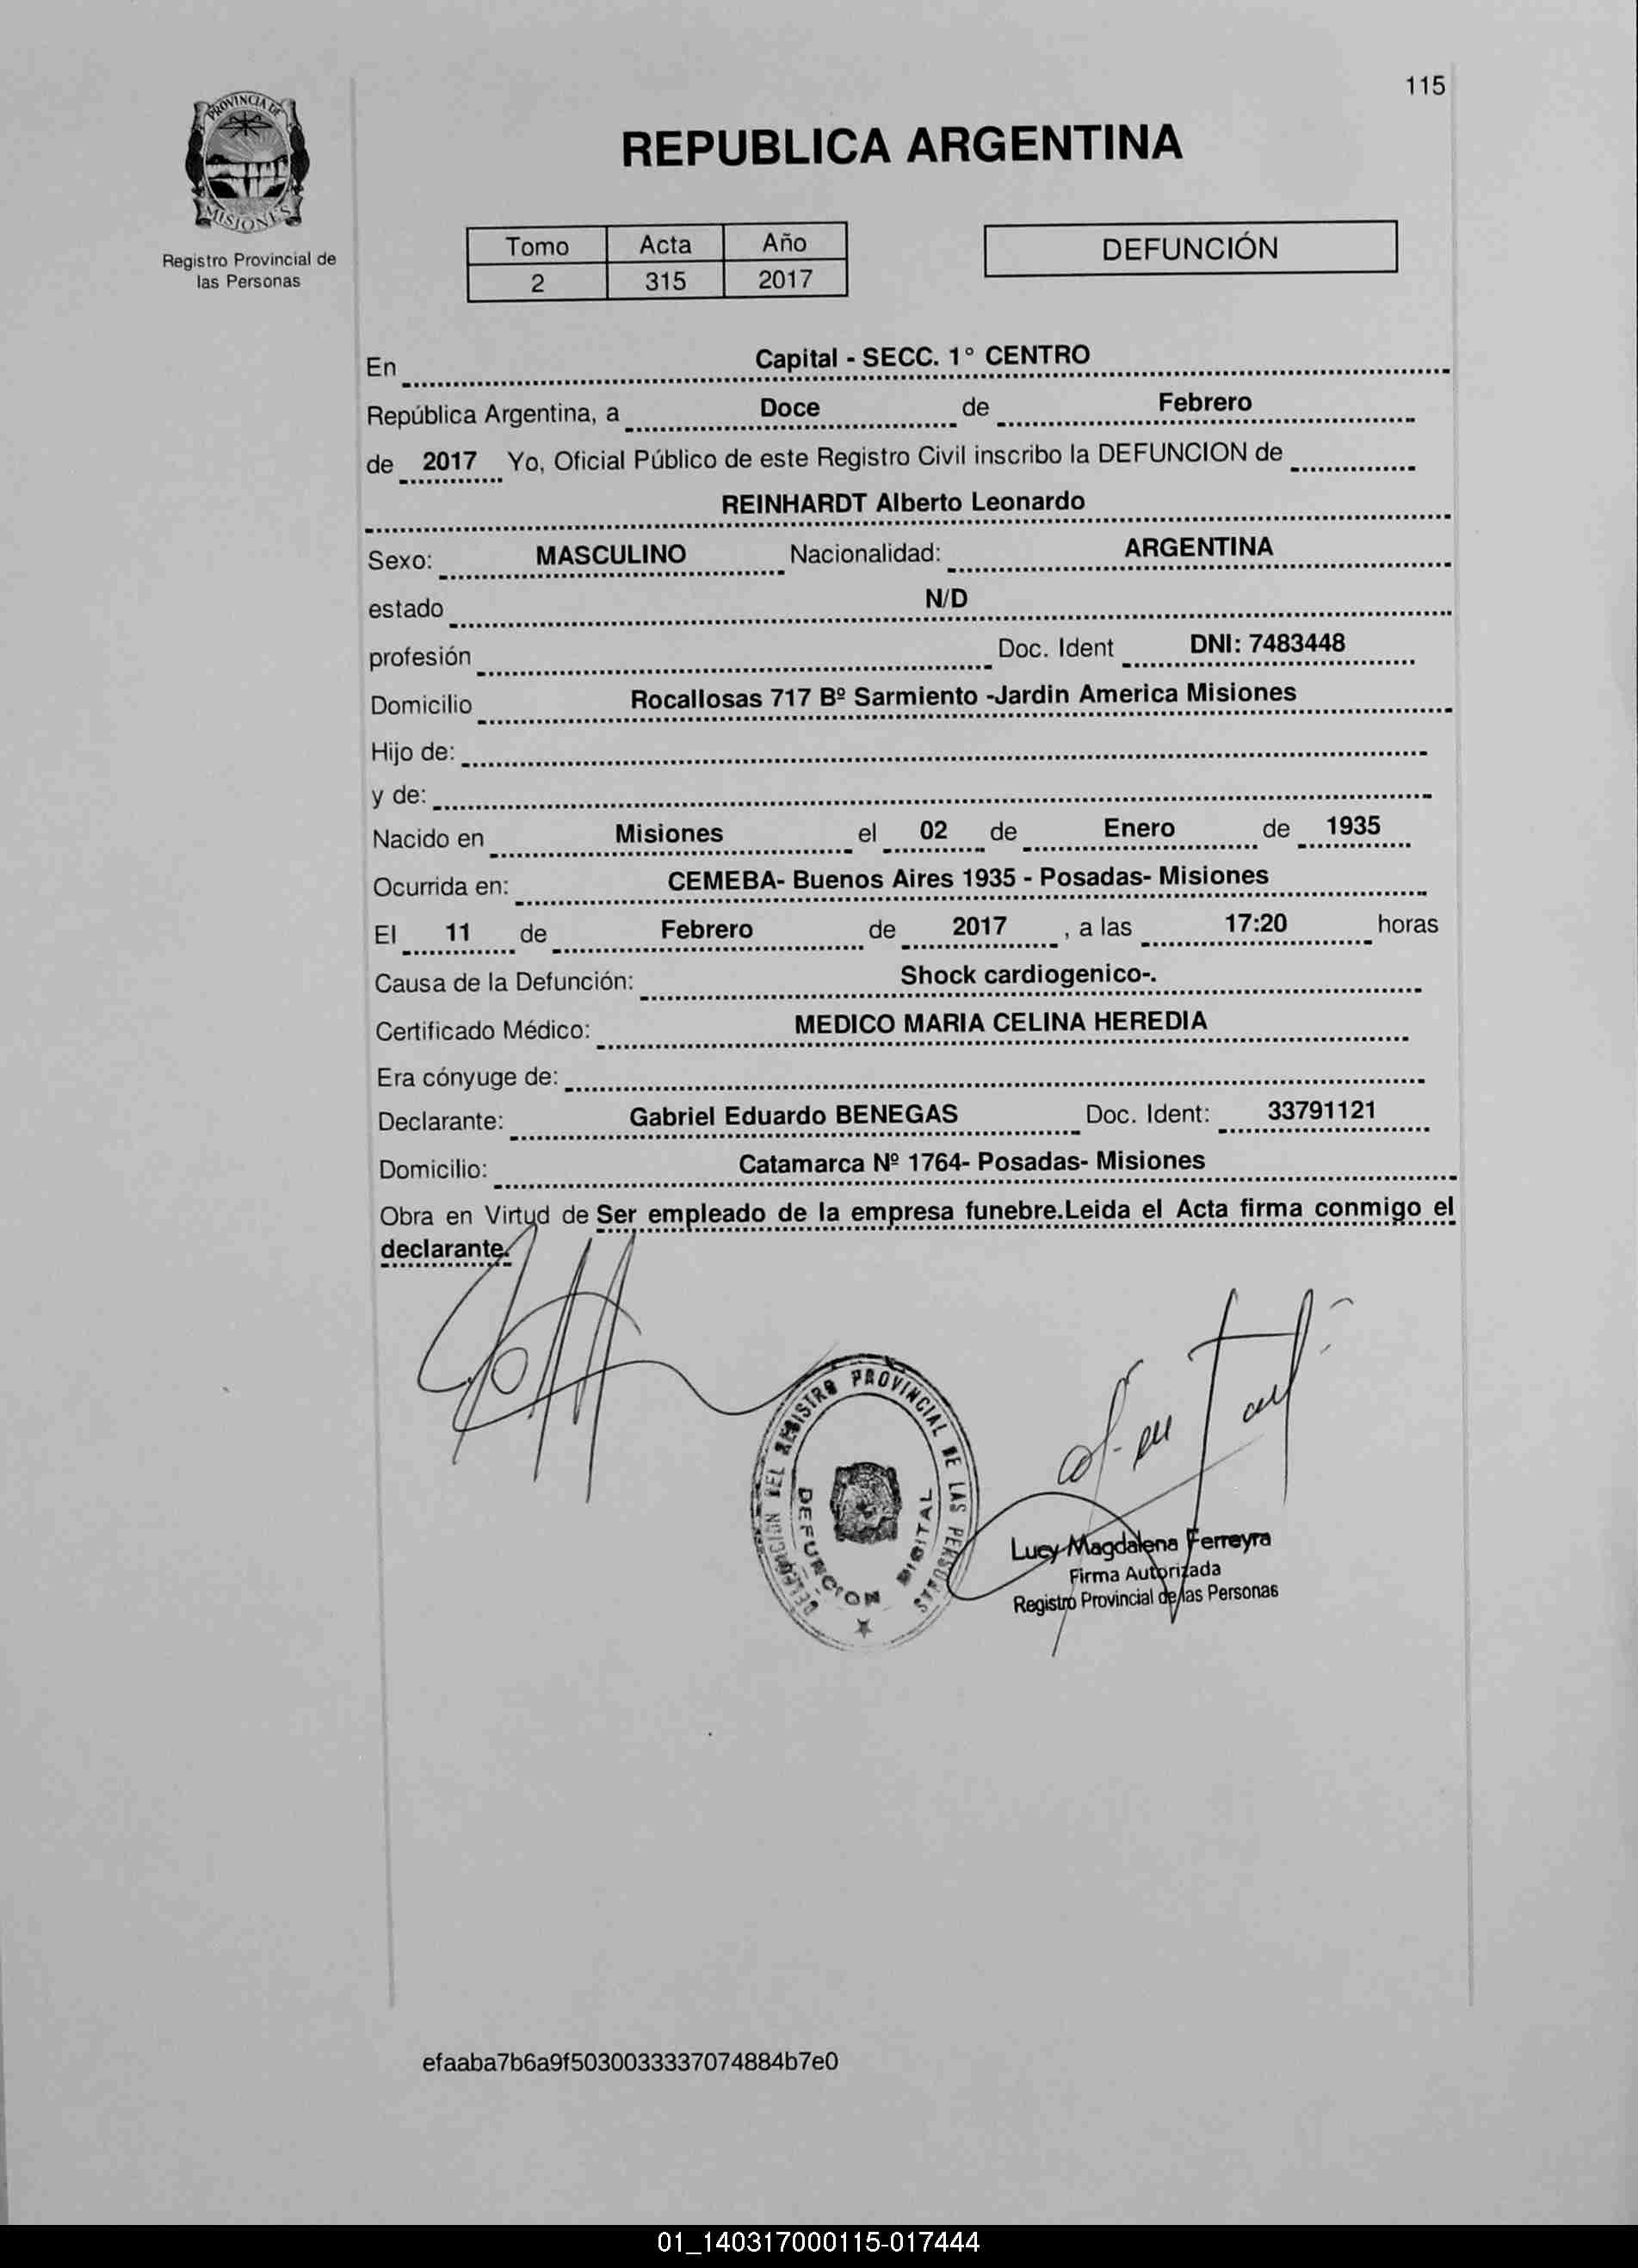 115
PROVINCIA DE
MISIONES
Registro Provincial de
las Personas
REPUBLICA ARGENTINA
Tomo Acta Año
2 315 2017
DEFUNCIÓN
En Capital - SECC. 1° CENTRO
República Argentina, a Doce de Febrero
de 2017 Yo, Oficial Público de este Registro Civil inscribo la DEFUNCION de
REINHARDT Alberto Leonardo
Sexo: MASCULINO Nacionalidad: ARGENTINA
estado N/D
profesión Doc. Ident DNI: 7483448
Domicilio Rocallosas 717 Bº Sarmiento -Jardin America Misiones
Hijo de:
y de:
Nacido en Misiones el 02 de Enero de 1935
Ocurrida en: CEMEBA- Buenos Aires 1935 - Posadas- Misiones
El 11 de Febrero de 2017 , a las 17:20 horas
Causa de la Defunción: Shock cardiogenico-.
Certificado Médico: MEDICO MARIA CELINA HEREDIA
Era cónyuge de:
Declarante: Gabriel Eduardo BENEGAS Doc. Ident: 33791121
Domicilio: Catamarca Nº 1764- Posadas- Misiones
Obra en Virtud de Ser empleado de la empresa funebre.Leida el Acta firma conmigo el
declarante.
DELEGACION DEL REGISTRO PROVINCIAL DE LAS PERSONAS
DEFUNCION DIGITAL
Lucy Magdalena Ferreyra
Firma Autorizada
Registro Provincial de las Personas
efaaba7b6a9f5030033337074884b7e0
01_140317000115-017444